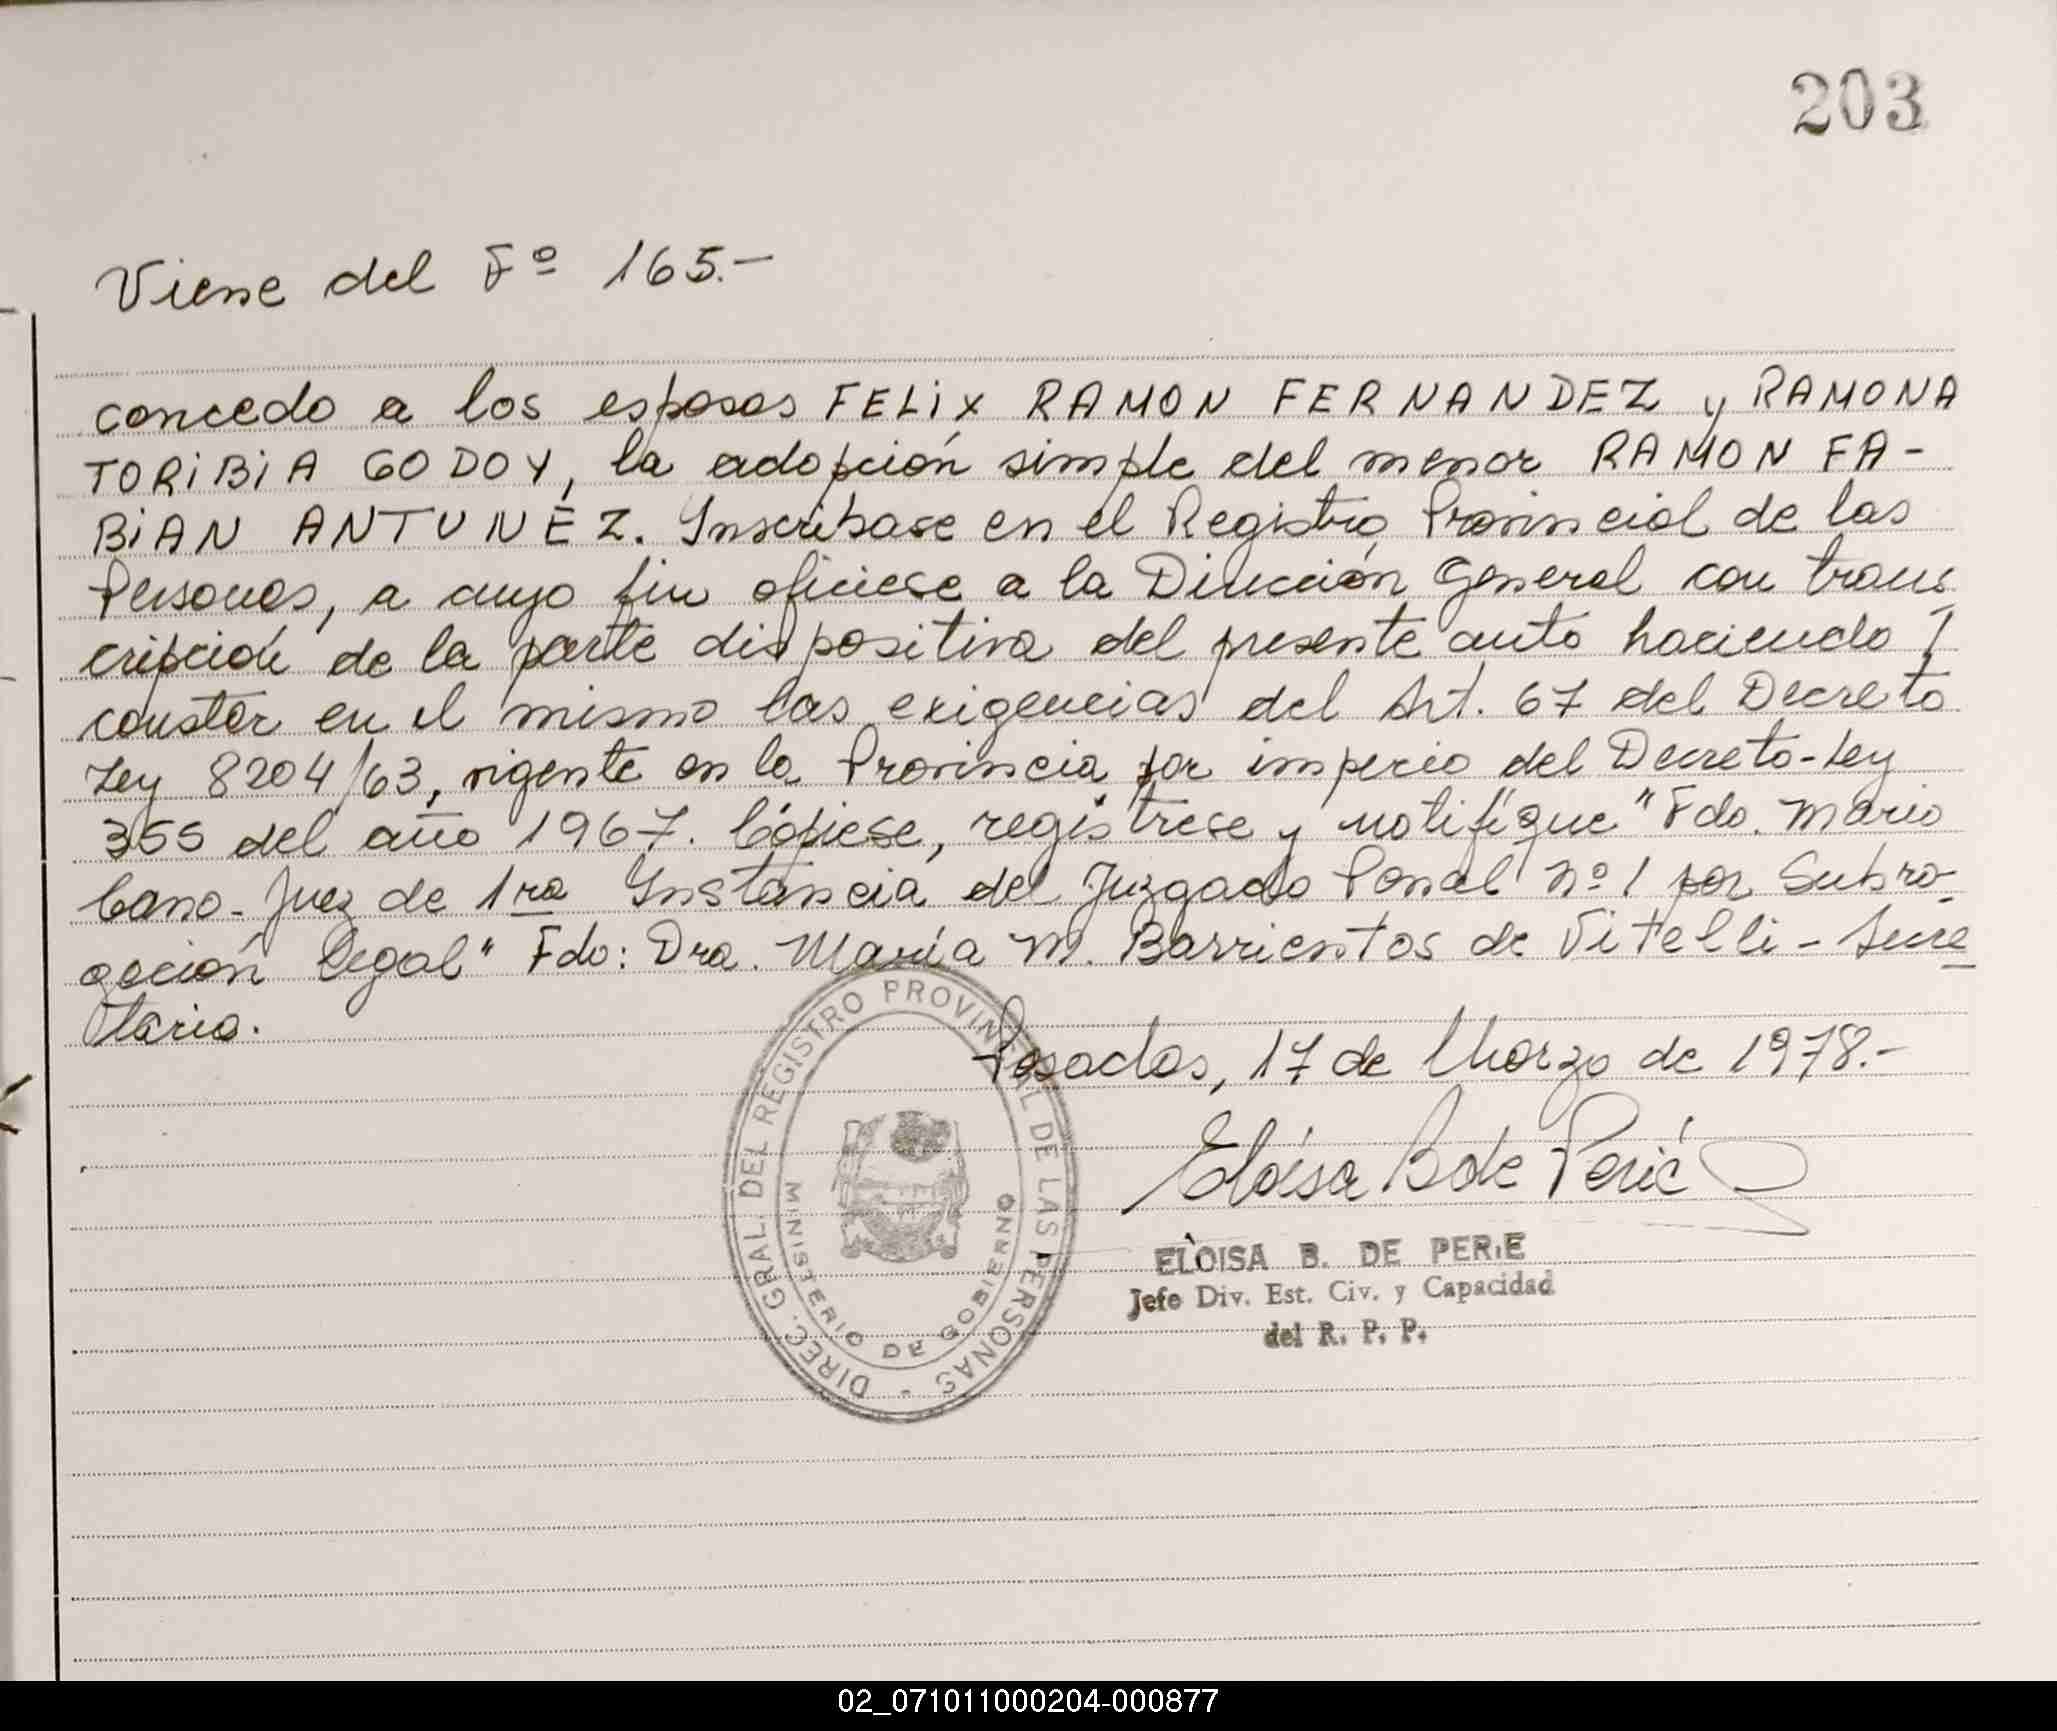 203
Viene del Fº 165.-
concedo a los esposos FELIX RAMON FERNANDEZ y RAMONA
TORIBIA GODOY, la adopción simple del menor RAMON FA-
BIAN ANTUNEZ. Inscríbase en el Registro Provincial de las
Personas, a cuyo fin ofíciese a la Dirección General con trans
cripción de la parte dispositiva del presente auto haciendo
constar en el mismo las exigencias del Art. 67 del Decreto
Ley 8204/63, vigente en la Provincia por imperio del Decreto-Ley
355 del año 1967. Cópiese, regístrese y notifíque" Fdo. Mario
Cano - Juez de 1ra Instancia del Juzgado Penal nº 1 por Subro-
gación Legal" Fdo: Dra. María M. Barrientos de Vitelli - Secre
taria.
Posadas, 17 de Marzo de 1978.-
Eloísa B de Perié
DIREC. GRAL. DEL REGISTRO PROVINCIAL DE LAS PERSONAS -
MINISTERIO DE GOBIERNO
ELOISA B. DE PERIE
Jefe Div. Est. Civ. y Capacidad
del R. P. P.
02_071011000204-000877